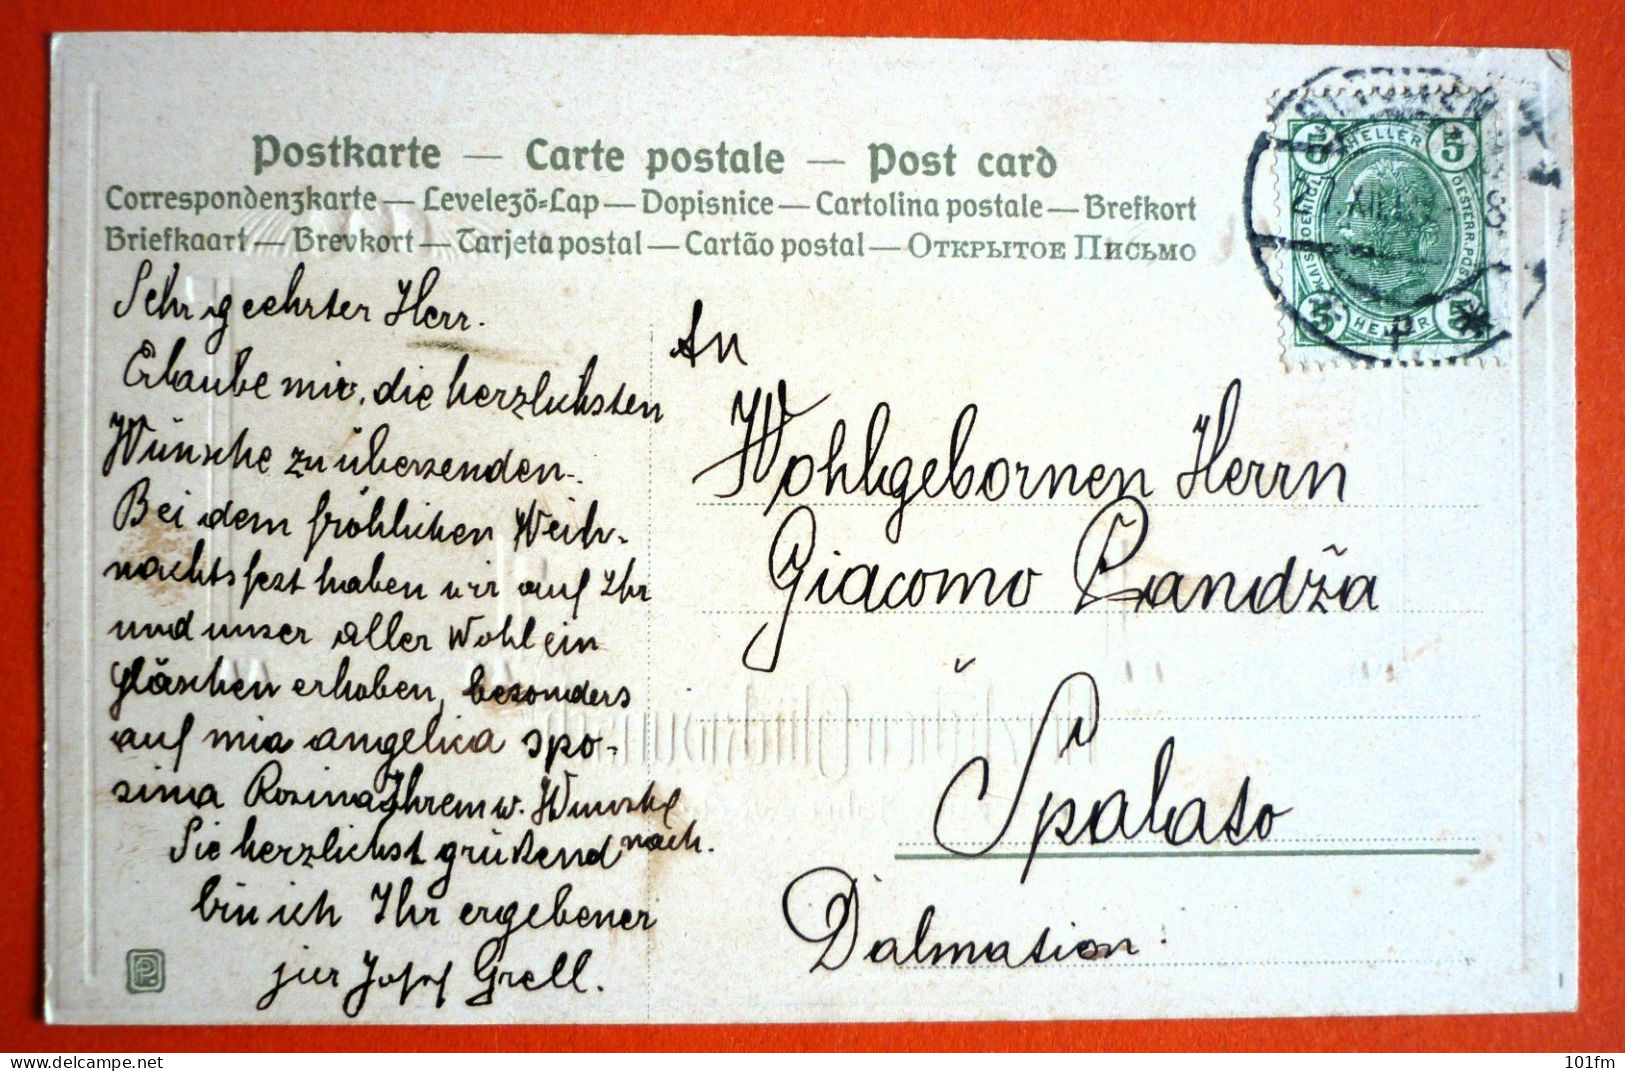 Postkarte — Carte postale — Post card
Correspondenzkarte — Levelező-Lap — Dopisnice — Cartolina postale — Brefkort
Briefkaart — Brevkort — Tarjeta postal — Cartão postal — Открытое Письмо
Sehr geehrter Herr.
Erlaube mir, die herzlichsten
Wünsche zu übersenden.
Bei dem fröhlichen Weih-
nachtsfest haben wir auf Ihr
und unser aller Wohl ein
Gläschen erhoben, besonders
auf mia angelica spo-
sina Rosina Ihrem w. Wunsche
nach.
Sie herzlichst grüßend
bin ich Ihr ergebener
jur Josef Grell.
An
Wohlgebornen Herrn
Giacomo Randža
Spalato
Dalmation.
5 HELLER 5
KAISERL. KOENIGL. OESTERR. POST
5 HELLER 5
101fm